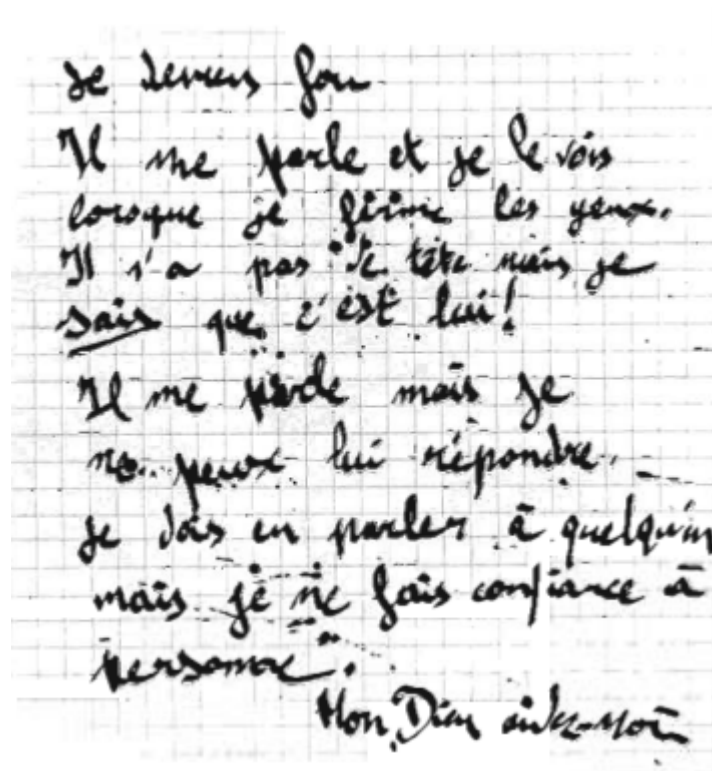 Je deviens fou
Il me parle et je le vois
lorsque je ferme les yeux.
Il n'a pas de tête mais je
sais que c'est lui!
Il me parle mais je
ne peux lui répondre.
Je dois en parler à quelqu'un
mais je ne fais confiance à
personne.
Mon Dieu aidez-moi